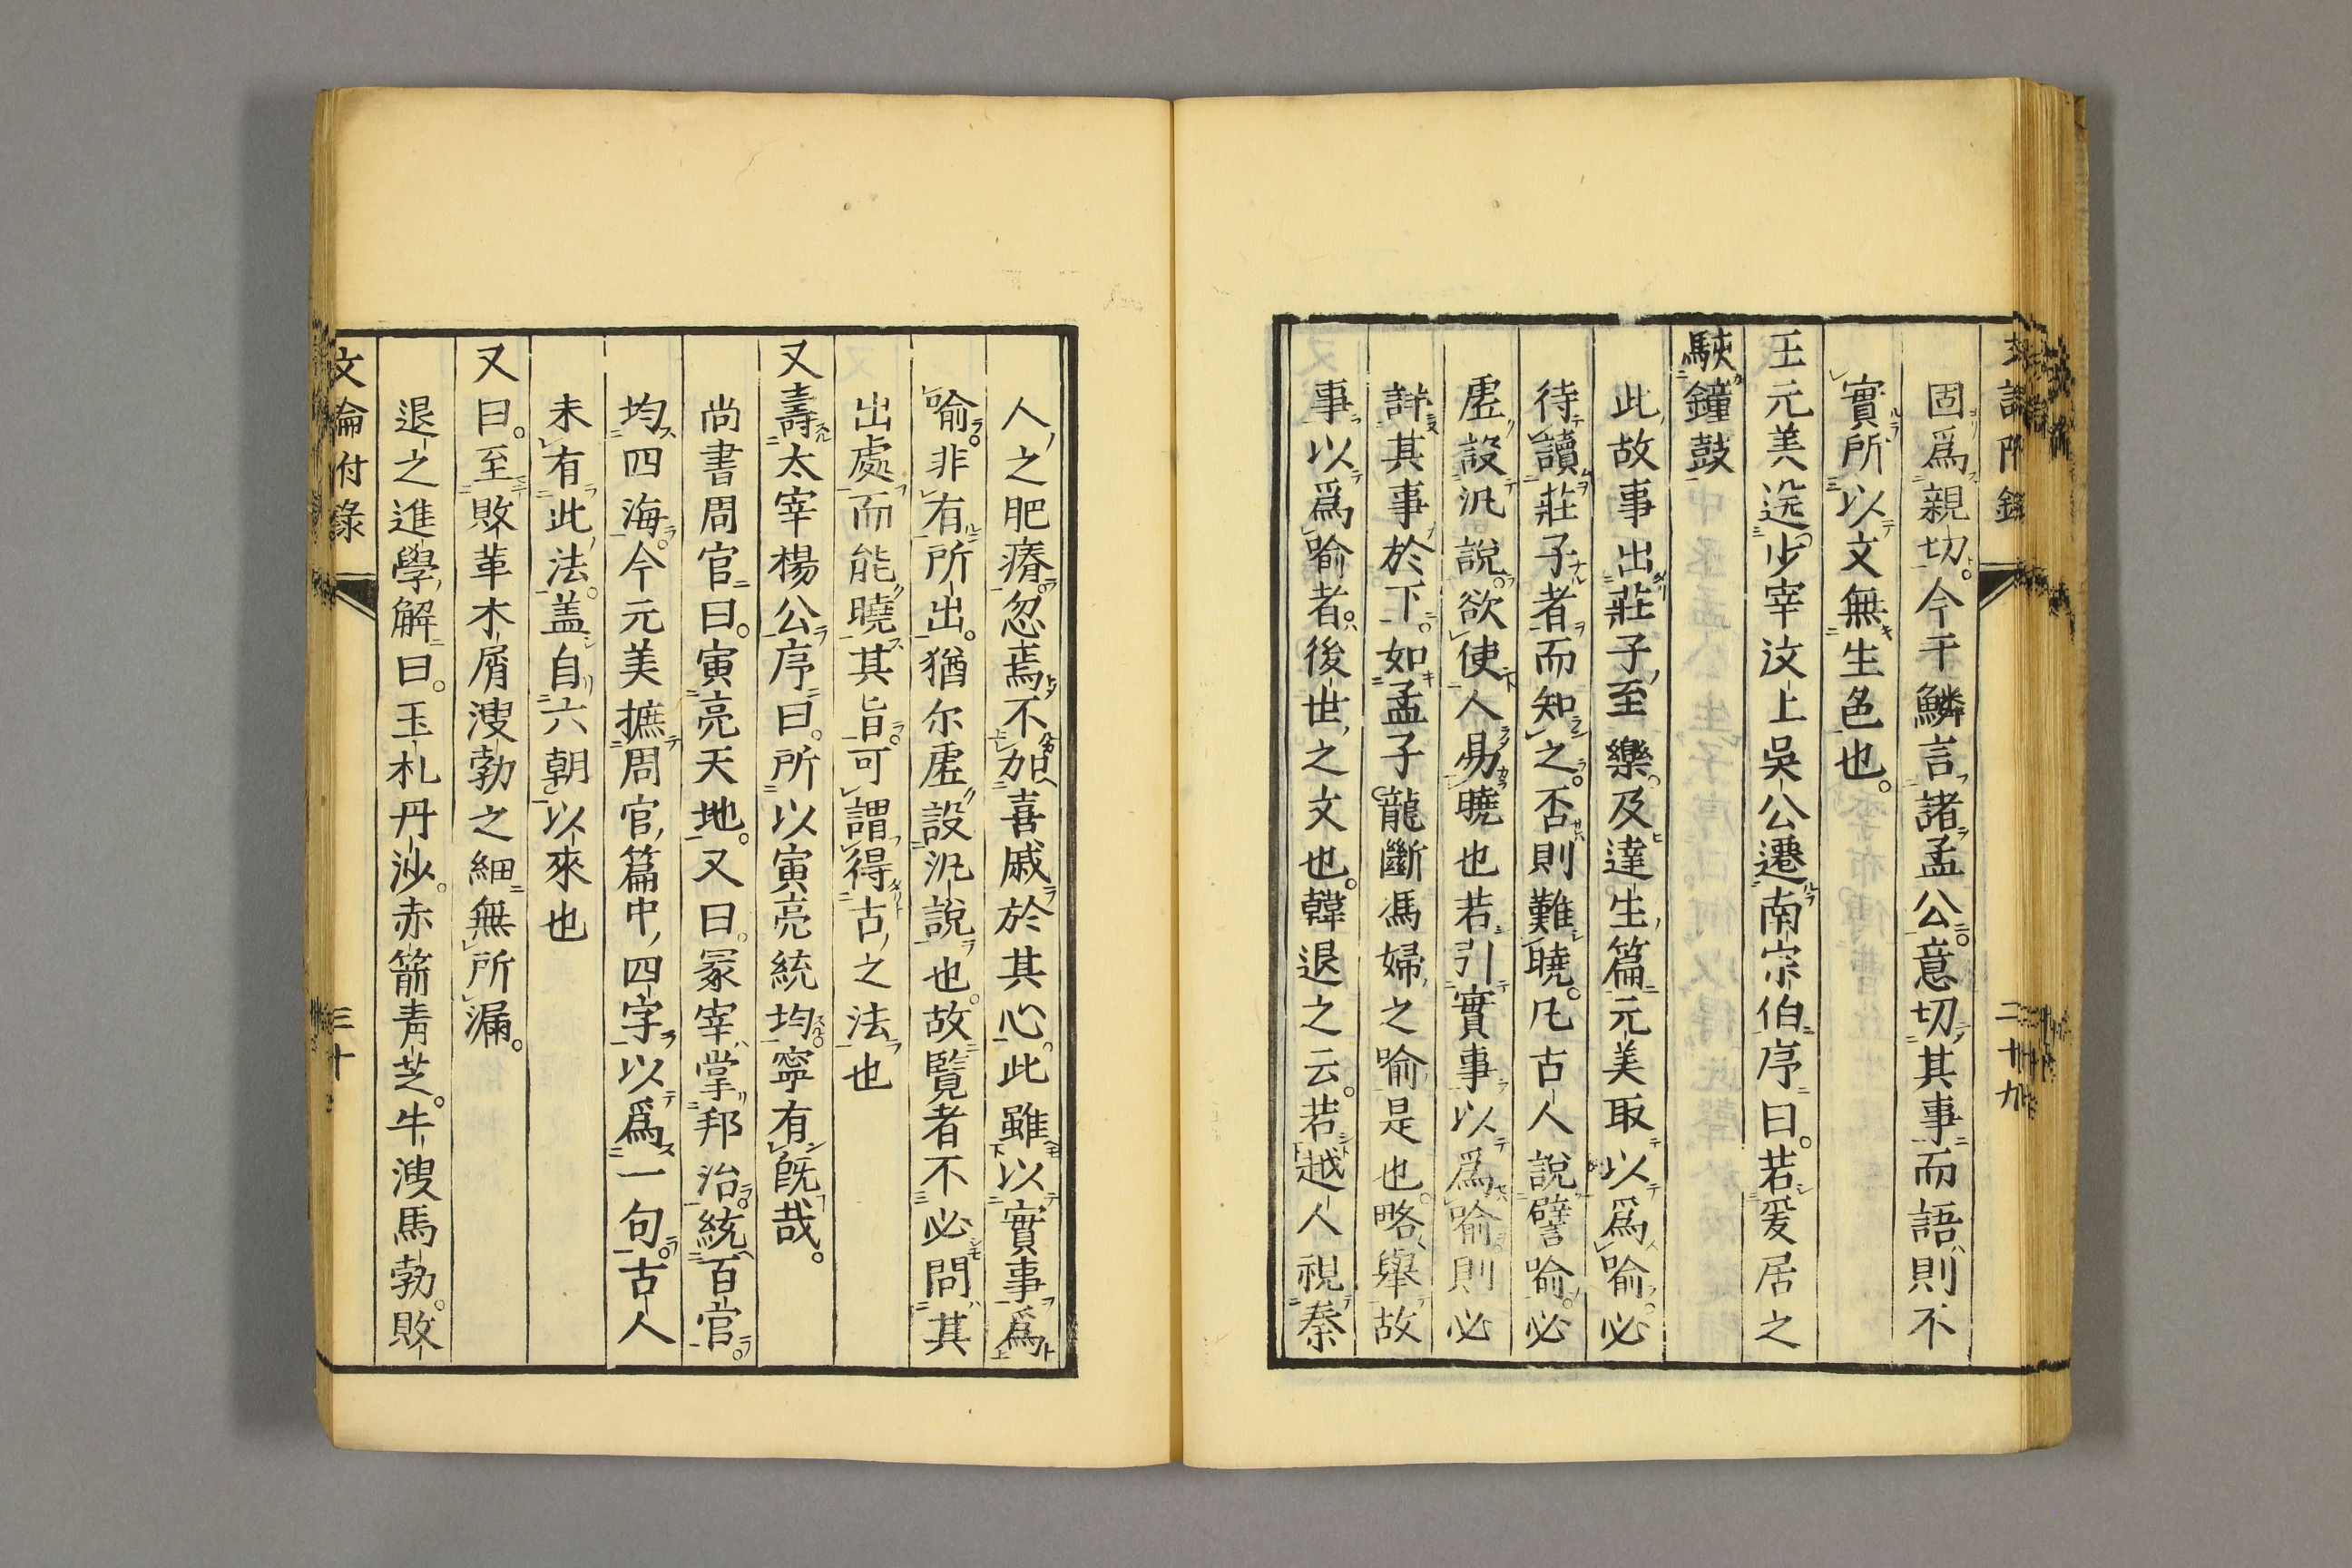 固爲親切今干鱗言諸孟公意切其事而語則不
實所以文無生色也
王元美送少宰汶上吳公遷南宗伯序曰若爰居之
駴鐘鼓
此故事出莊子至樂及達生篇元美取以爲喻必
待讀莊子者而知之否則難曉凡古人說譬喻必
虛設汎說欲使人易曉也若引實事以爲喻則必
詳其事於下如孟子龍斷馮婦之喻是也略舉故
事以爲喻者後世之文也韓退之云若越人視秦
二十九
人之肥瘠忽焉不加喜戚於其心此雖以實事爲
喻非有所出猶尔虛設汎說也故覽者不必問其
出處而能曉其旨可謂得古之法也
又壽太宰楊公序曰所以寅亮統均寧有旣哉
尚書周官曰寅亮天地又曰冢宰掌邦治統百官
均四海今元美摭周官篇中四字以爲一句古人
未有此法盖自六朝以來也
又曰至敗革木屑溲勃之細無所漏
退之進學解曰玉札丹沙赤箭青芝牛溲馬勃敗
文論付錄
三十